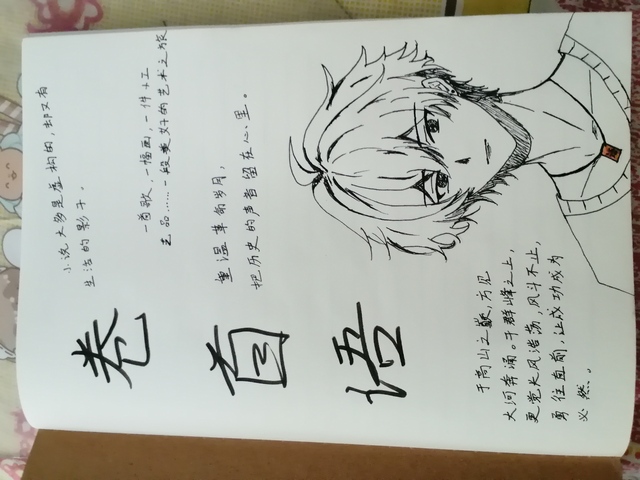 卷首语
小说大多是虚构的，却又有
生活的影子。
一首歌，一幅画，一件小工
艺品……一段美好的艺术之旅
重温革命岁月，
把历史的声音留在心里。
于高山之巅，方见
大河奔涌。于群峰之上，
更觉长风浩荡，风斗不止，
勇往直前，让成功成为
必然。